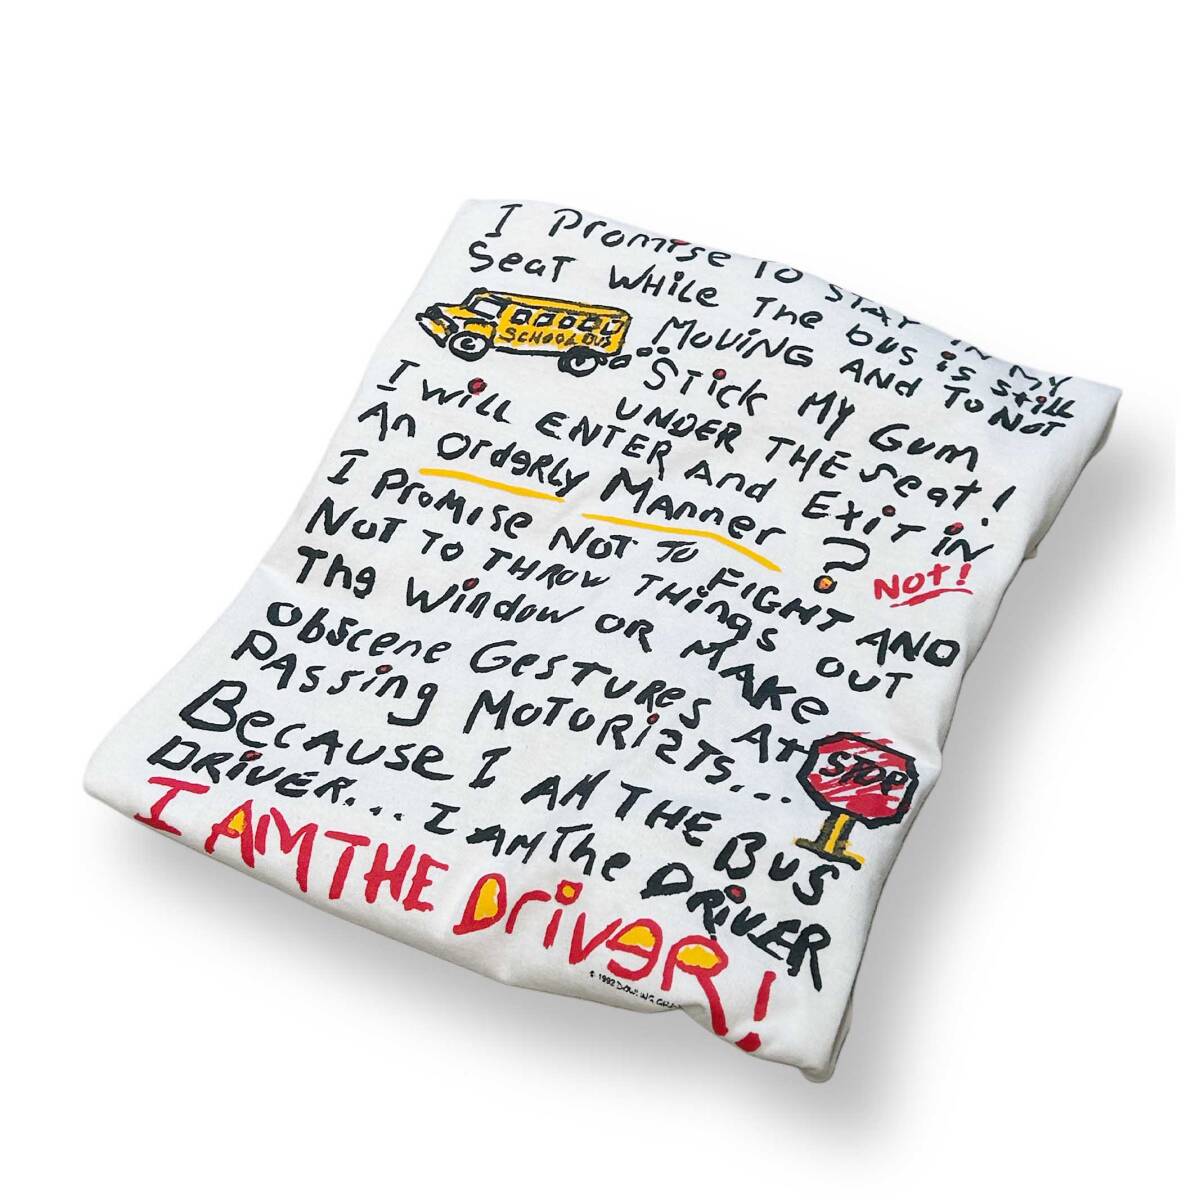 I Promise To STAY IN MY
Seat WHile The bus is still
SCHOOL BUS
MOViNG AND To NOT
STick MY Gum
UNDER THE seat!
I Will ENTER And Exit iN
An OrdeRLy Manner ?
NOt!
I PROMise NOT TO FIGHT AND
NOT TO THROW THings OUT
The Window OR MAKE
obscene GesTURes At
PAssing MOTORiSTS...
STOP
Because I AM THE BUS
DRiVER... I AM The DRiVER
I AM THE DriveR!
© 1992 DOWLING GRA